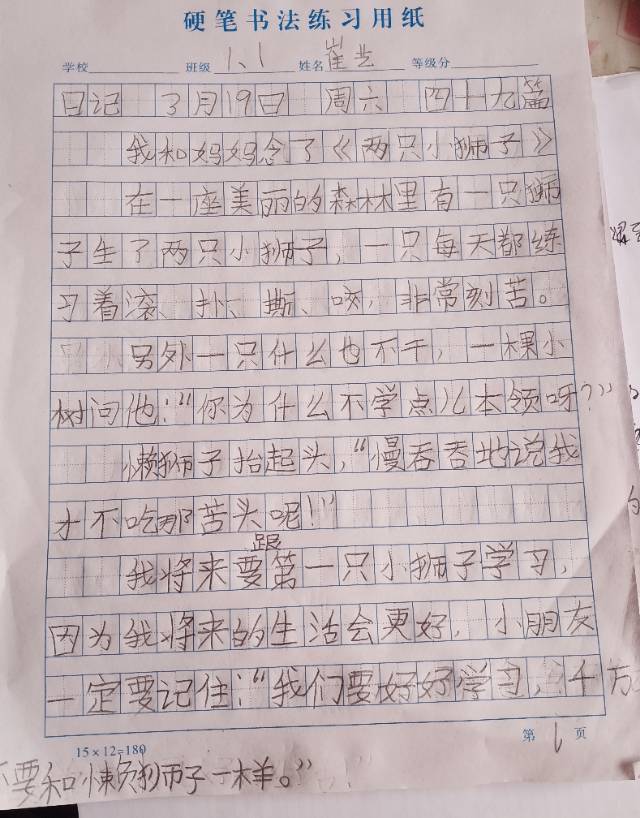 硬笔书法练习用纸
学校 班级 1、1 姓名 崔艺 等级分
日记 3月19日 周六 四十九篇
我和妈妈念了《两只小狮子》
在一座美丽的森林里有一只狮
子生了两只小狮子,一只每天都练
习着滚、扑、撕、咬,非常刻苦。
另外一只什么也不干,一棵小
树问他:“你为什么不学点儿本领呀?”
懒狮子抬起头,“慢吞吞地说我
才不吃那苦头呢!”
跟
我将来要第一只小狮子学习,
因为我将来的生活会更好,小朋友
一定要记住:“我们要好好学习,千万
第 1 页
15×12=180
不要和懒狮子一样。”